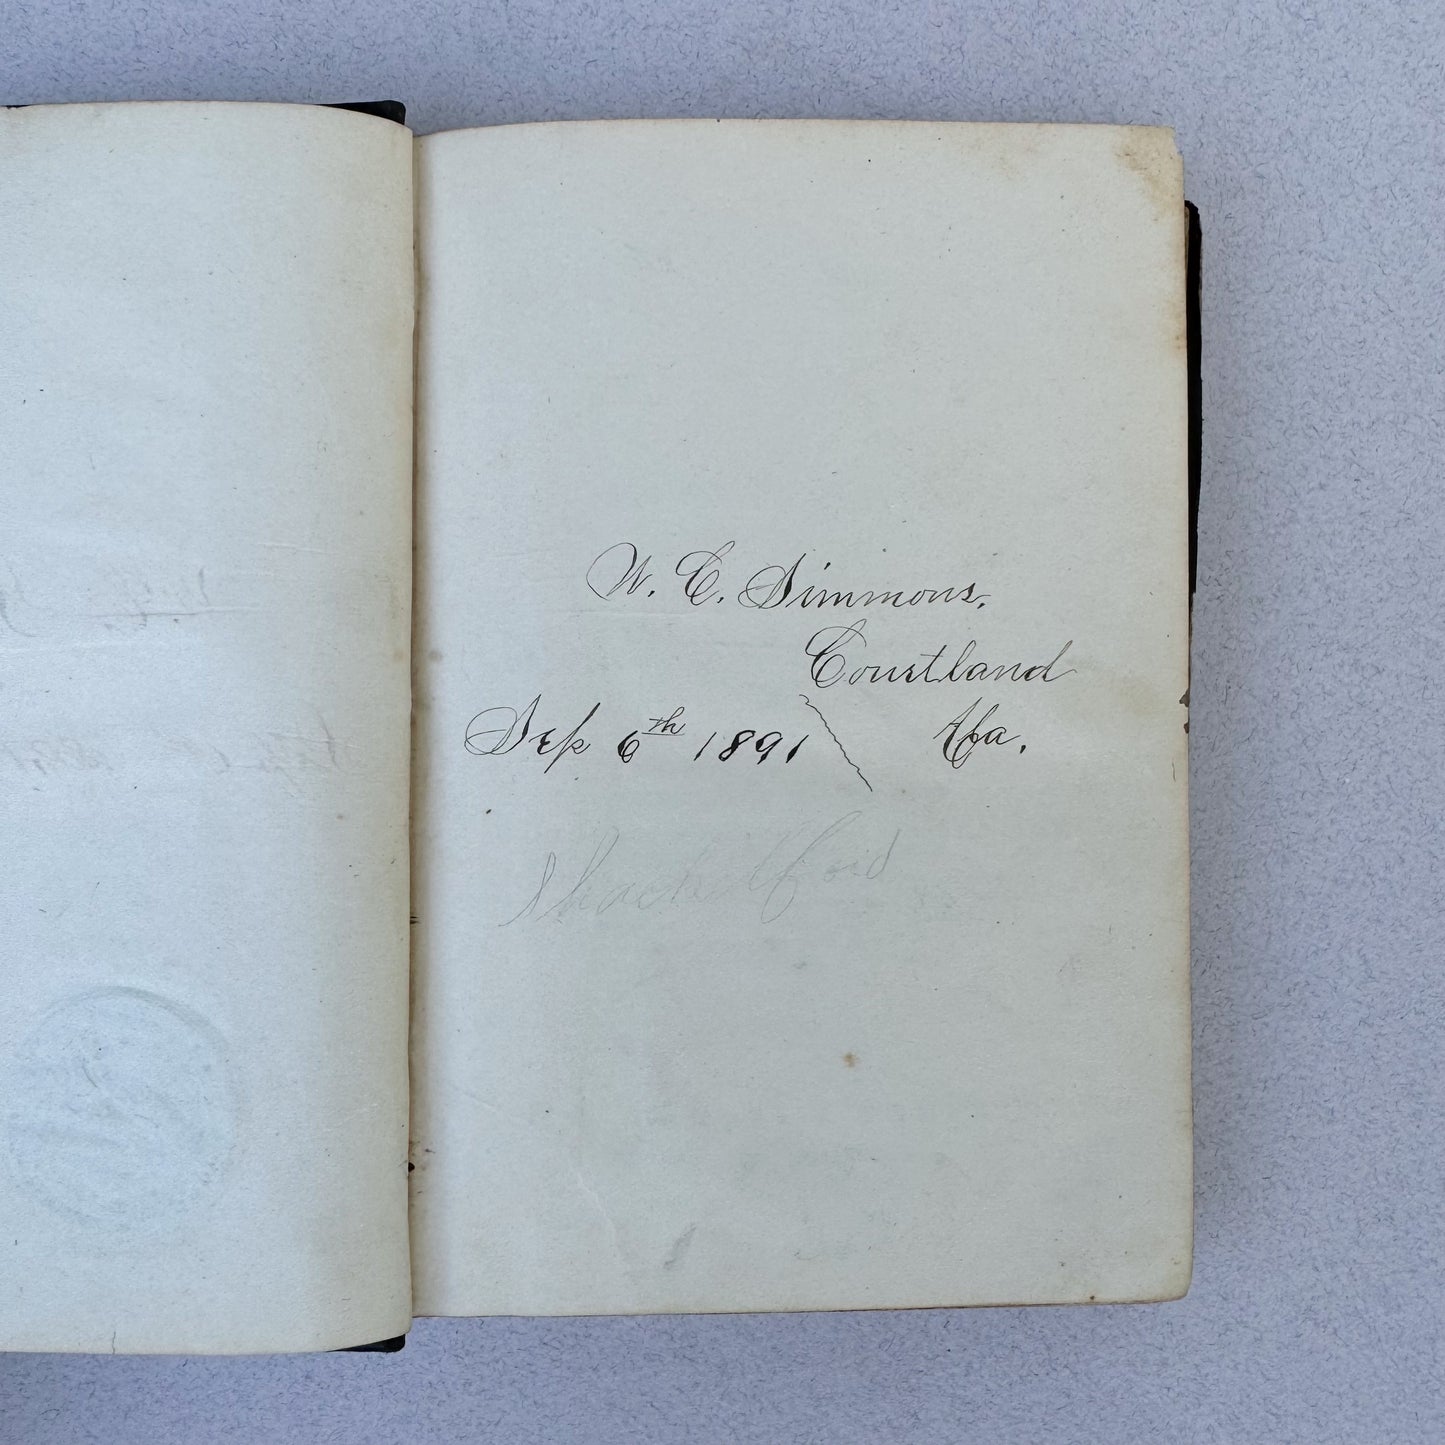 W. C. Simmons.
Courtland
Sep 6th 1891
Ala.
Shackelford